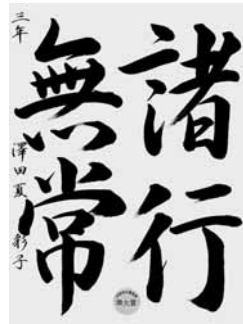 諸行
無常
三年 澤田夏彩子